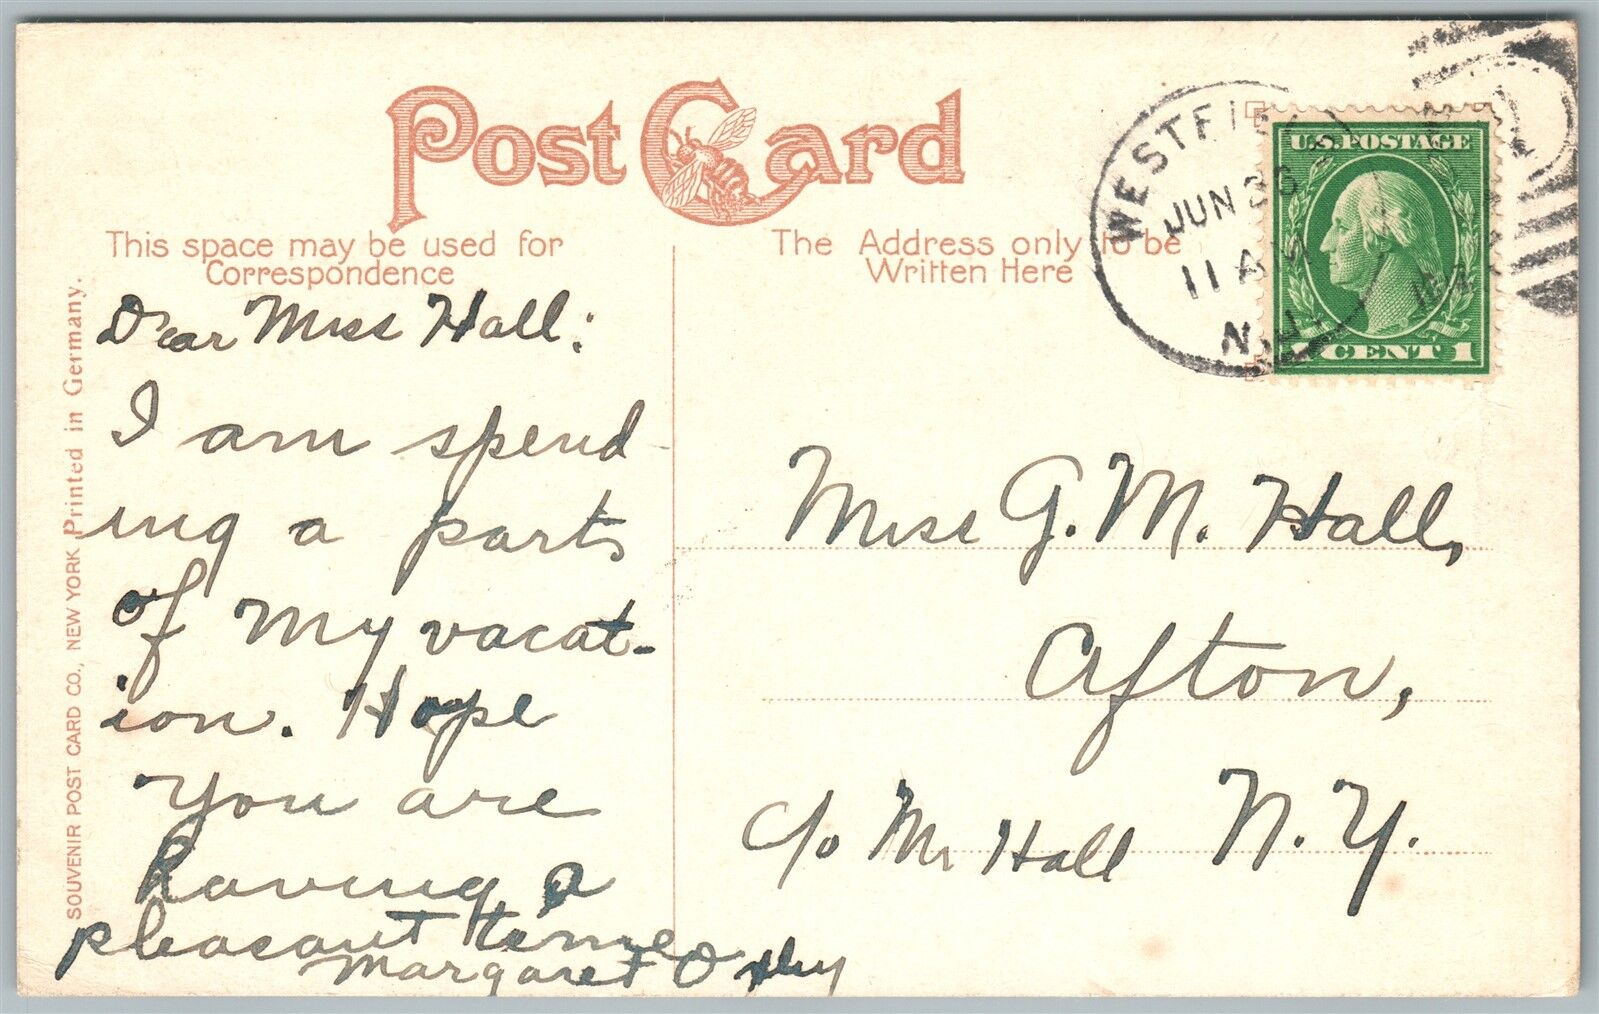 Post Card
This space may be used for
Correspondence
The Address only to be
Written Here
WESTFIEL
JUN 26
11 A
N.J.
U.S. POSTAGE
1 CENT 1
SOUVENIR POST CARD CO., NEW YORK Printed in Germany.
Dear Miss Hall:
I am spend-
ing a parts
of my vacat-
ion. Hope
you are
having a
pleasant time
Margaret
Miss G. M. Hall,
Afton,
c/o Mr Hall N. Y.